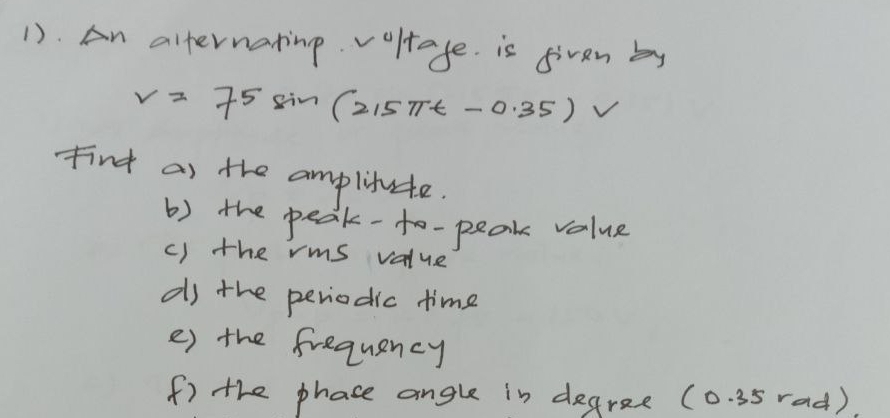 1). An alternating voltage. is given by
v = 75 sin (215πt - 0.35) v
Find a) the amplitude.
b) the peak-to-peak value
c) the rms value
d) the periodic time
e) the frequency
f) the phase angle in degree (0.35 rad).